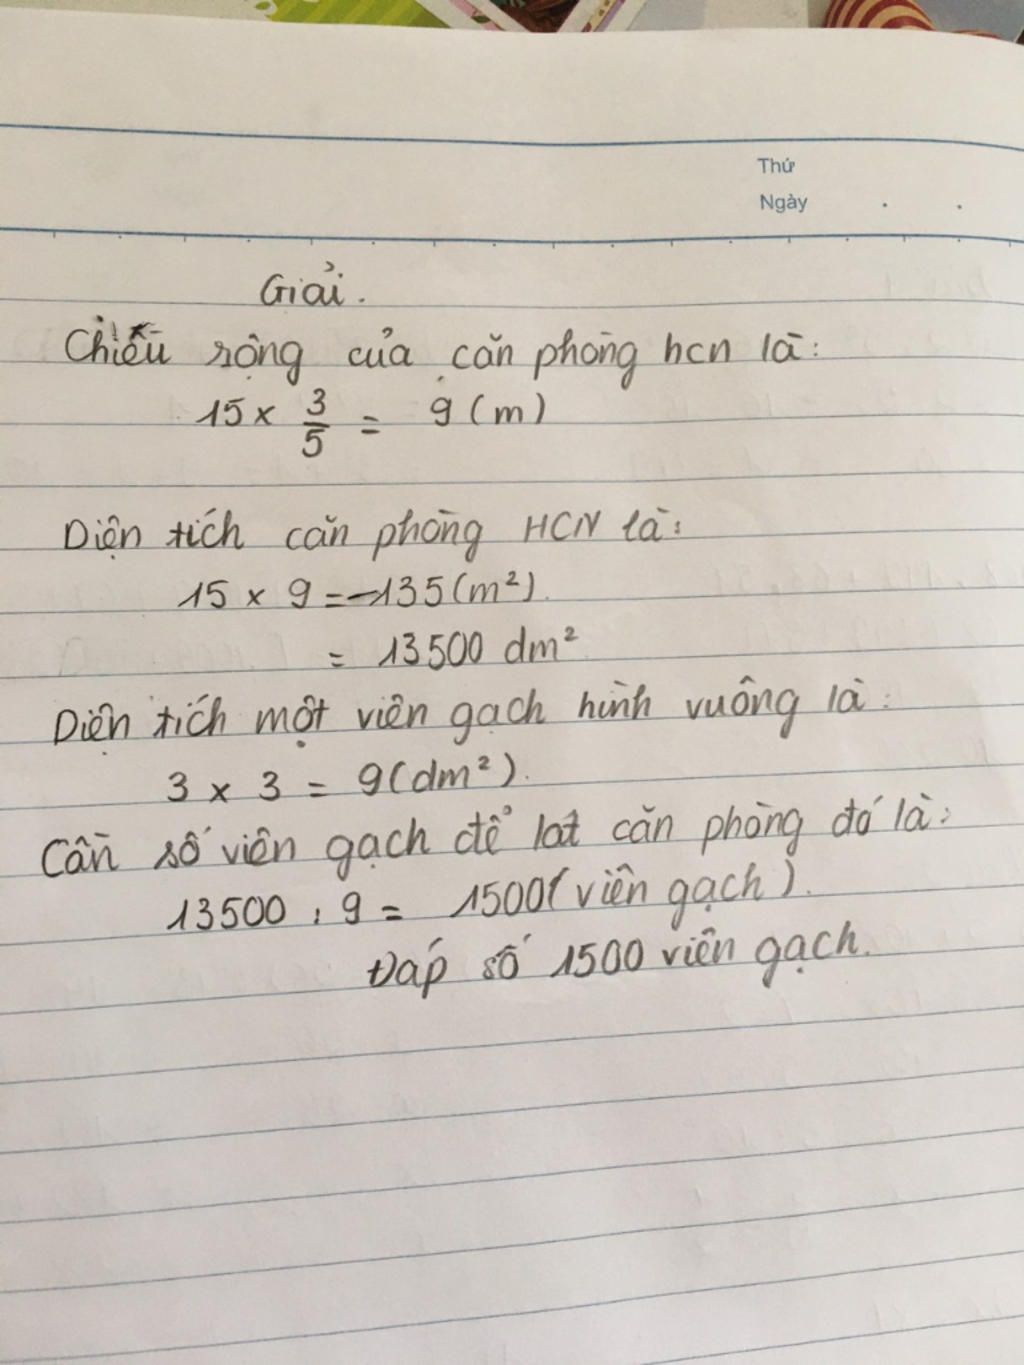 Thứ
Ngày . .
Giải.
Chiều rộng của căn phòng hcn là:
15 x 3/5 = 9 (m)
Diện tích căn phòng HCN là:
15 x 9 = 135 (m²).
= 13500 dm²
Diện tích một viên gạch hình vuông là:
3 x 3 = 9 (dm²).
Cần số viên gạch để lát căn phòng đó là:
13500 : 9 = 1500 (viên gạch).
Đáp số 1500 viên gạch.